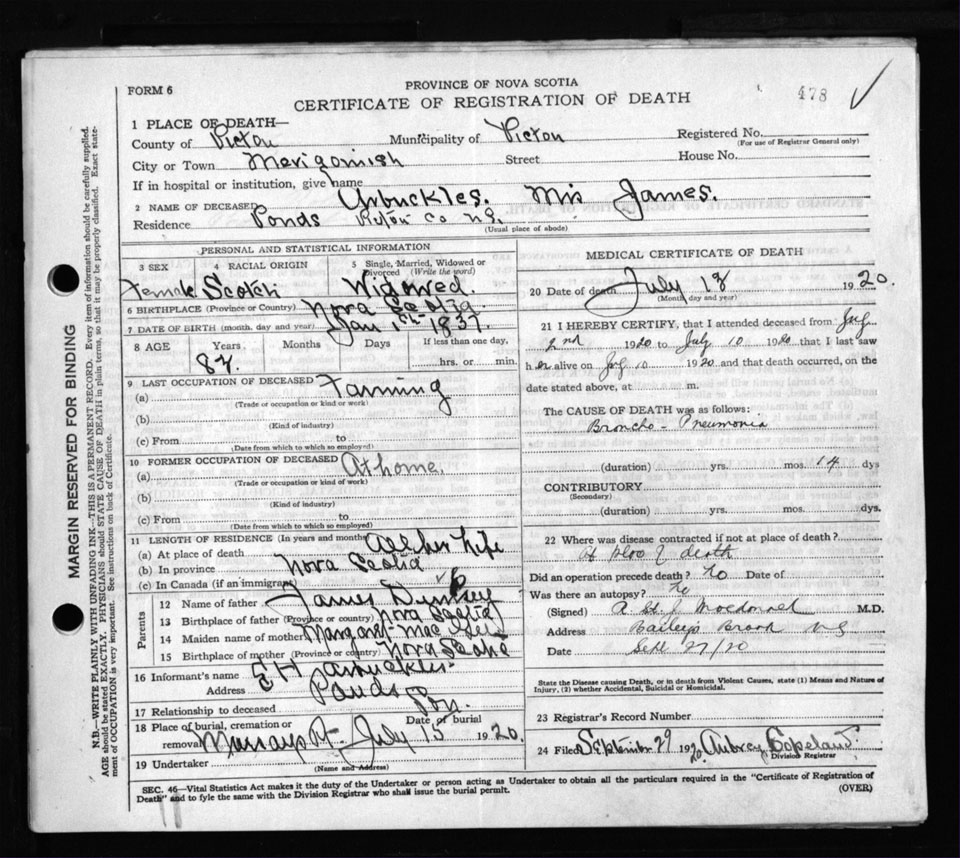 PROVINCE OF NOVA SCOTIA
FORM 6
CERTIFICATE OF REGISTRATION OF DEATH
478
1 PLACE OF DEATH—
County of Pictou Municipality of Pictou Registered No.
(For use of Registrar General only)
City or Town Merigomish Street House No.
If in hospital or institution, give name
2 NAME OF DECEASED Arbuckles. Mrs James.
Residence Ponds Pictou Co N.S.
(Usual place of abode)
PERSONAL AND STATISTICAL INFORMATION
3 SEX
Female
4 RACIAL ORIGIN
Scotch
5 Single, Married, Widowed or Divorced (Write the word)
Widowed
6 BIRTHPLACE (Province or Country) Nova Scotia
7 DATE OF BIRTH (month, day and year) Jan 1st 1837.
8 AGE Years Months Days If less than one day,
hrs. or min.
9 LAST OCCUPATION OF DECEASED
(a) Farming
(Trade or occupation or kind or work)
(b)
(Kind of industry)
(c) From to
(Date from which to which so employed)
10 FORMER OCCUPATION OF DECEASED
(a) At home.
(Trade or occupation or kind of work)
(b)
(Kind of industry)
(c) From to
(Date from which to which so employed)
11 LENGTH OF RESIDENCE (In years and months)
(a) At place of death All her life
(b) In province Nova Scotia
(c) In Canada (if an immigrant)
Parents
12 Name of father James
13 Birthplace of father (Province or country) Nova Scotia
14 Maiden name of mother Margaret
15 Birthplace of mother (Province or country) Nova Scotia
16 Informant's name E H Arbuckles
Address Ponds
17 Relationship to deceased Son.
18 Place of burial, cremation or removal Murrays Pt. Date of burial July 15 1920.
19 Undertaker
(Name and Address)
MEDICAL CERTIFICATE OF DEATH
20 Date of death July 13 1920.
(Month, day and year)
21 I HEREBY CERTIFY, that I attended deceased from July
2nd 1920 to July 10 1920 that I last saw
her alive on July 10 1920 and that death occurred, on the
date stated above, at m.
The CAUSE OF DEATH was as follows:
Broncho-Pneumonia
(duration) yrs. mos. 14 dys
CONTRIBUTORY
(Secondary)
(duration) yrs. mos. dys.
22 Where was disease contracted if not at place of death?
At place of death
Did an operation precede death? No Date of
Was there an autopsy? No
(Signed) A St. J Macdonnel M.D.
Address Baileys Brook N S
Date Sept 27/20
State the Disease causing Death, or in death from Violent Causes, state (1) Means and Nature of Injury, (2) whether Accidental, Suicidal or Homicidal.
23 Registrar's Record Number
24 Filed September 29 1920 Aubrey Copeland
Division Registrar
SEC. 46—Vital Statistics Act makes it the duty of the Undertaker or person acting as Undertaker to obtain all the particulars required in the "Certificate of Registration of
Death" and to fyle the same with the Division Registrar who shall issue the burial permit.
(OVER)
MARGIN RESERVED FOR BINDING
N.B.—WRITE PLAINLY WITH UNFADING INK—THIS IS A PERMANENT RECORD. Every item of information should be carefully supplied.
AGE should be stated EXACTLY. PHYSICIANS should STATE CAUSE OF DEATH in plain terms, so that it may be properly classified. Exact statement of OCCUPATION is very important. See instructions on back of Certificate.